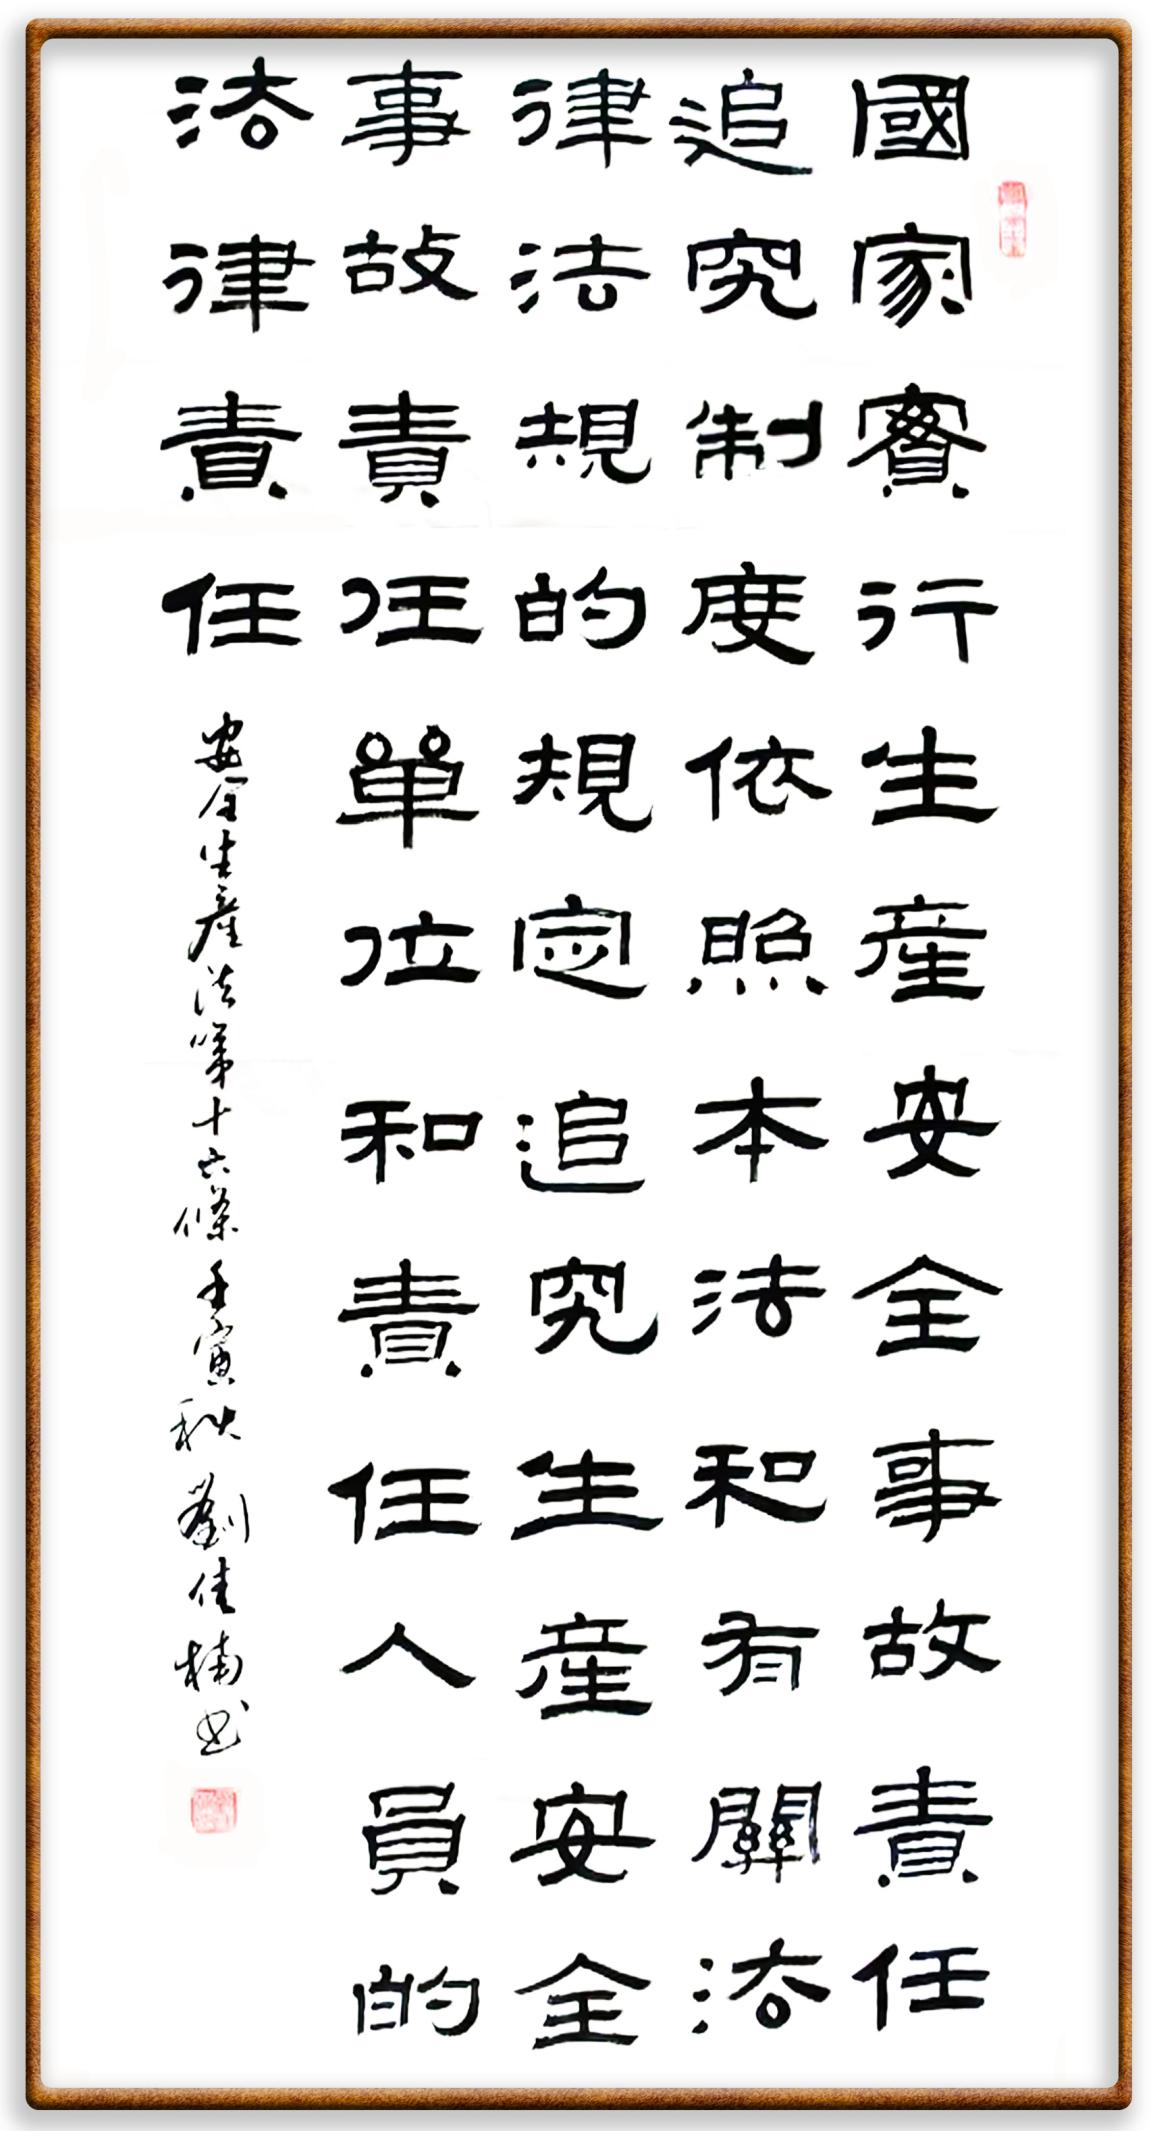 國家實行生産安全事故責任
追究制度依照本法和有關法
律法規的規定追究生産安全
事故責任單位和責任人員的
法律責任
安全生産法第十六條壬寅秋劉佳楠書